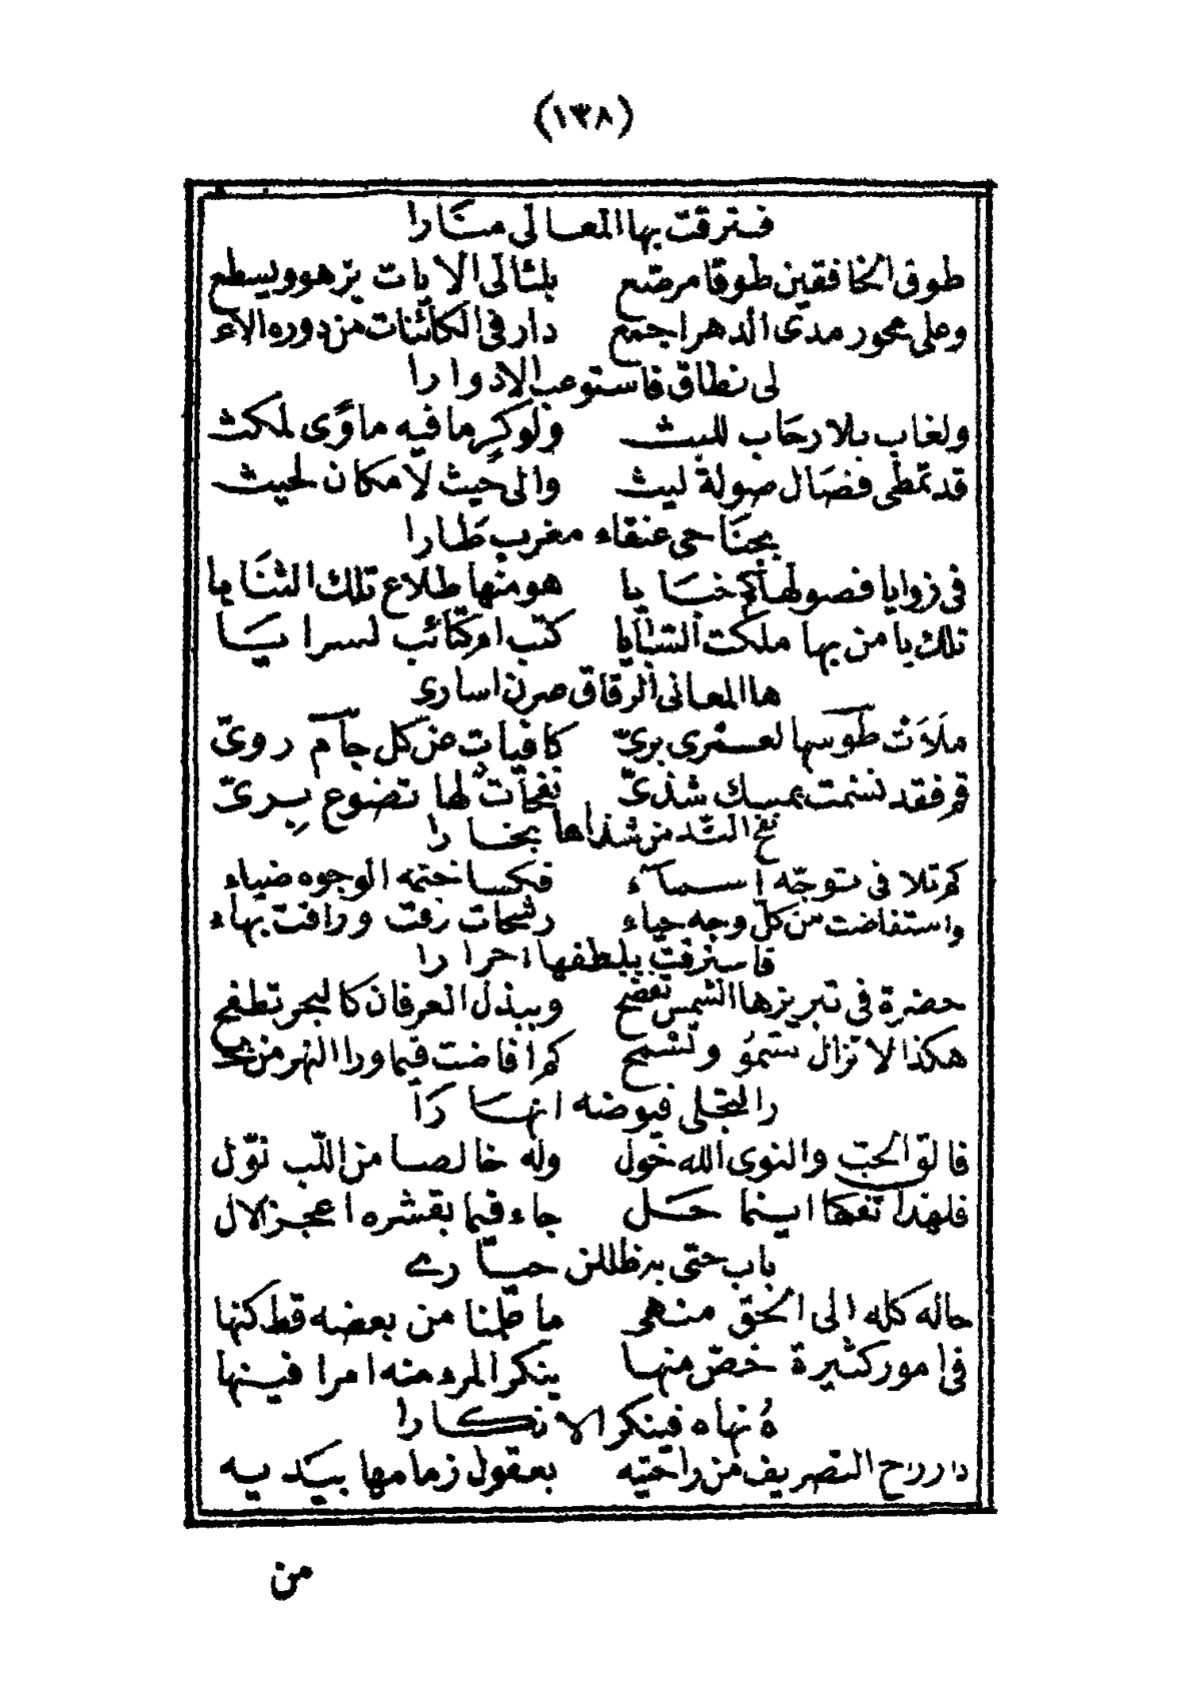 (١٣٨)
فترقت بها المعالى منارا
طوق الخافقين طوقا مرصّع بلئالى الايات يزهو ويسطع
وعلى محور مدى الدهر اجمع دار فى الكائنات من دوره الاء
لى نطاق فاستوعب الادوارا
ولغاب بلا رحاب للبث ولوكر ما فيه ماوًى لمكث
قد تمطى فضال صولة ليث والى حيث لا مكان لحيث
بجناحى عنقاء مغرب طارا
فى زوايا فصولها كم خبايا هو منها طلاع تلك الثنايا
تلك يا من بها ملكت السّرايا كتب ام كتائب لسرايا
ها المعانى الرقاق صرن اسارى
ملاَت طوسها لعمرى برىّ كافيات عن كل جام روىّ
قم فقد نسّمت بمسك شذىّ نفحات لها تضوع برىّ
نفح النّد من شذاها بخارا
كم تلا فى توجّه اسماء فكسا ختمه الوجوه ضياء
واستفاضت من كلّ وجه حياء رشحات رقت وراقت بهاء
فاسترقت بلطفها احرارا
حضرة فى تبريزها الشمس تفضح وببذل العرفان كالبحر تطفح
هكذا لا تزال تسمو وتشمخ كم افاضت فيما ورا النهر من بحـ
را لتجلى فيوضه انهارا
فالق الحبّ والنوى الله خول وله خالصا من اللّب نوّل
فلهذا تفكها اينما حل جاء فيما بقشره اعجز الال
باب حتى به ظللن حيارے
حاله كله الى الحق منهى ما قلنا من بعضه قط كنها
فى امور كثيرة خصّ منها ينكر المرء منه امرا فينها
هُ نهاه فينكر الانكارا
دار راح التصريف من راحتيه بعقول زمامها بيديه
من